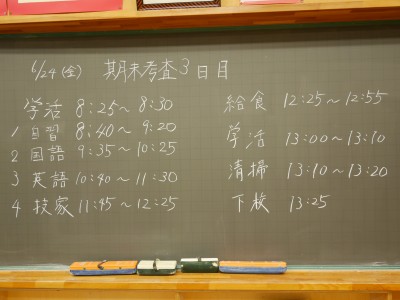 6/24(金) 期末考査3日目
学活 8:25～8:30
1 自習 8:40～9:20
2 国語 9:35～10:25
3 英語 10:40～11:30
4 技家 11:45～12:25
給食 12:25～12:55
学活 13:00～13:10
清掃 13:10～13:20
下校 13:25